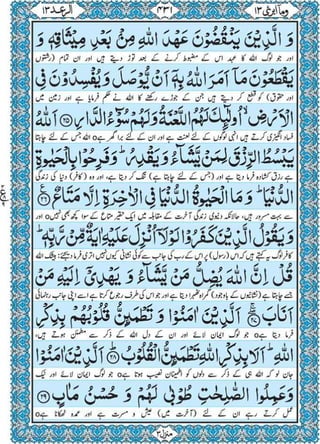 الرعد ١٣ ٣٣١ وما ابرئ ١٣
وَ الَّذِيْنَ يَنْقُضُوْنَ عَهْدَ اللّٰهِ مِنْۢ بَعْدِ مِيْثَاقِهٖ وَ
اور جو لوگ اللہ کا عہد اس کے مضبوط کرنے کے بعد توڑ دیتے ہیں اور ان تمام (رشتوں
يَقْطَعُوْنَ مَاۤ اَمَرَ اللّٰهُ بِهٖۤ اَنْ يُّوْصَلَ وَ يُفْسِدُوْنَ فِی
اور حقوق) کو قطع کر دیتے ہیں جن کے جوڑے رکھنے کا اللہ نے حکم فرمایا ہے اور زمین میں
الْاَرْضِ ۙ اُولٰٓىِٕكَ لَهُمُ اللَّعْنَةُ وَ لَهُمْ سُوْٓءُ الدَّارِ ﴿۲۵﴾ اَللّٰهُ
فساد انگیزی کرتے ہیں انہی لوگوں کے لئے لعنت ہے اور ان کے لئے برا گھر ہے o اللہ جس کے لئے چاہتا
يَبْسُطُ الرِّزْقَ لِمَنْ يَّشَآءُ وَ يَقْدِرُ ؕ وَ فَرِحُوْا بِالْحَيٰوةِ
ہے رزق کشادہ فرما دیتا ہے اور (جس کے لئے چاہتا ہے) تنگ کر دیتا ہے، اور وہ (کافر) دنیا کی زندگی
الدُّنْيَا ؕ وَ مَا الْحَيٰوةُ الدُّنْيَا فِی الْاٰخِرَةِ اِلَّا مَتَاعٌ ﴿۲۶﴾
سے بہت مسرور ہیں، حالانکہ دنیوی زندگی آخرت کے مقابلہ میں ایک حقیر متاع کے سوا کچھ بھی نہیں o اور
وَ يَقُوْلُ الَّذِيْنَ كَفَرُوْا لَوْ لَاۤ اُنْزِلَ عَلَيْهِ اٰيَةٌ مِّنْ رَّبِّهٖ ؕ
کافر لوگ یہ کہتے ہیں کہ اس (رسول) پر اس کے رب کی جانب سے کوئی نشانی کیوں نہیں اتری فرما دیجئے: بیشک اللہ
قُلْ اِنَّ اللّٰهَ يُضِلُّ مَنْ يَّشَآءُ وَ يَهْدِیْۤ اِلَيْهِ مَنْ
جسے چاہتا ہے (نشانیوں کے باوجود) گمراہ ٹھہرا دیتا ہے اور جو اس کی طرف رجوع کرتا ہے اسے اپنی جانب رہنمائی
اَنَابَ ﴿۲۷﴾ اَلَّذِيْنَ اٰمَنُوْا وَ تَطْمَىِٕنُّ قُلُوْبُهُمْ بِذِكْرِ
فرما دیتا ہے o جو لوگ ایمان لائے اور ان کے دل اللہ کے ذکر سے مطمئن ہوتے ہیں،
اللّٰهِ ؕ اَلَا بِذِكْرِ اللّٰهِ تَطْمَىِٕنُّ الْقُلُوْبُ ﴿۲۸﴾ اَلَّذِيْنَ اٰمَنُوْا
جان لو کہ اللہ ہی کے ذکر سے دلوں کو اطمینان نصیب ہوتا ہے o جو لوگ ایمان لائے اور نیک
وَ عَمِلُوا الصّٰلِحٰتِ طُوْبٰی لَهُمْ وَ حُسْنُ مَاٰبٍ ﴿۲۹﴾
عمل کرتے رہے ان کے لئے (آخرت میں) عیش و مسرت ہے اور عمدہ ٹھکانا ہے o
منزل ٣